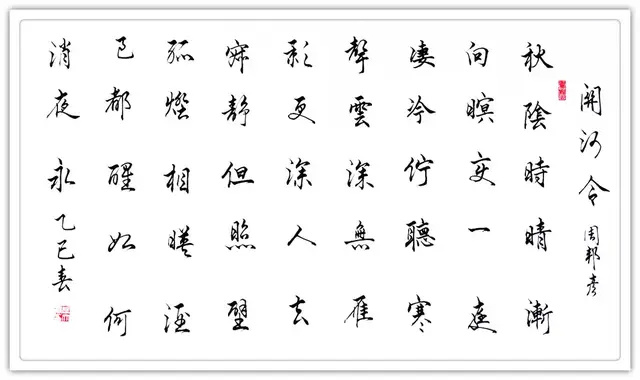 開河令 周邦彥
秋陰時晴漸
向暝变一庭
凄冷佇聽寒
聲雲深無雁
影更深人去
寂靜但照壁
孤燈相暎酒
已都醒如何
消夜永 乙巳春